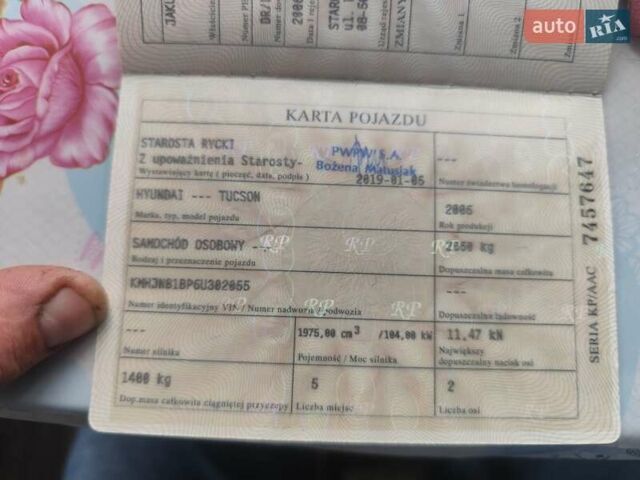 auto RIA .com
KARTA POJAZDU
STAROSTA RYCKI
Z upoważnienia Starosty-
PWPW S.A.
Bożena Matusiak
---
Wystawiający kartę ( pieczęć, data, podpis )
2019-01-05
Numer świadectwa homologacji
HYUNDAI --- TUCSON
2006
Marka, typ, model pojazdu
Rok produkcji
SAMOCHÓD OSOBOWY -
kg
Rodzaj i przeznaczenie pojazdu
Dopuszczalna masa całkowita
KMHJN81BP6U302055
---
Numer identyfikacyjny VIN / Numer nadwozia / podwozia
Dopuszczalna ładowność
---
1975,00 cm³ /104,00 kW
11,47 kN
Numer silnika
Pojemność / Moc silnika
Największy
dopuszczalny nacisk osi
1400 kg
5
2
Dop.masa całkowita ciągniętej przyczepy
Liczba miejsc
Liczba osi
SERIA KP/AAC 7457647